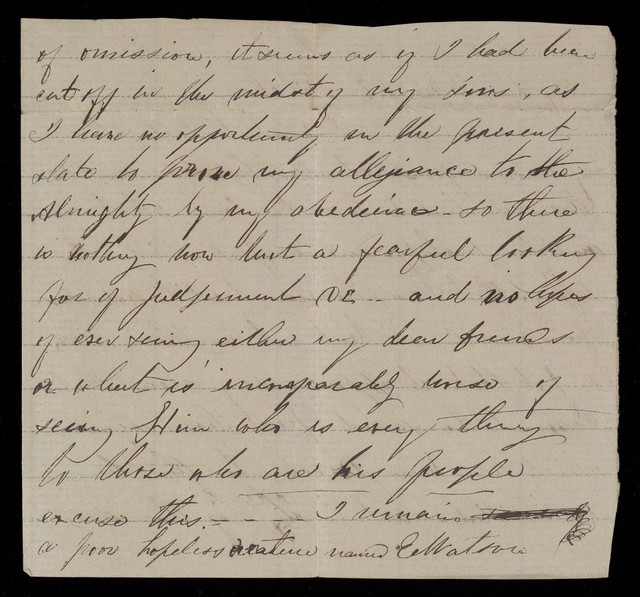 of omission, it seems as if I had been
cut off in the midst of my sins, as
I have no opportunity in the present
state to prove my allegiance to the
Almighty by my obedience - so there
is nothing now but a fearful looking
for of Judgement &c - and no hopes
of ever seeing either my dear friends
or what is incomparably worse of
seeing Him who is every thing
to those who are his people
excuse this. - - - - I remain
a poor hopeless creature named E Watson